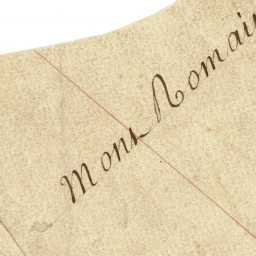 Mont Romai